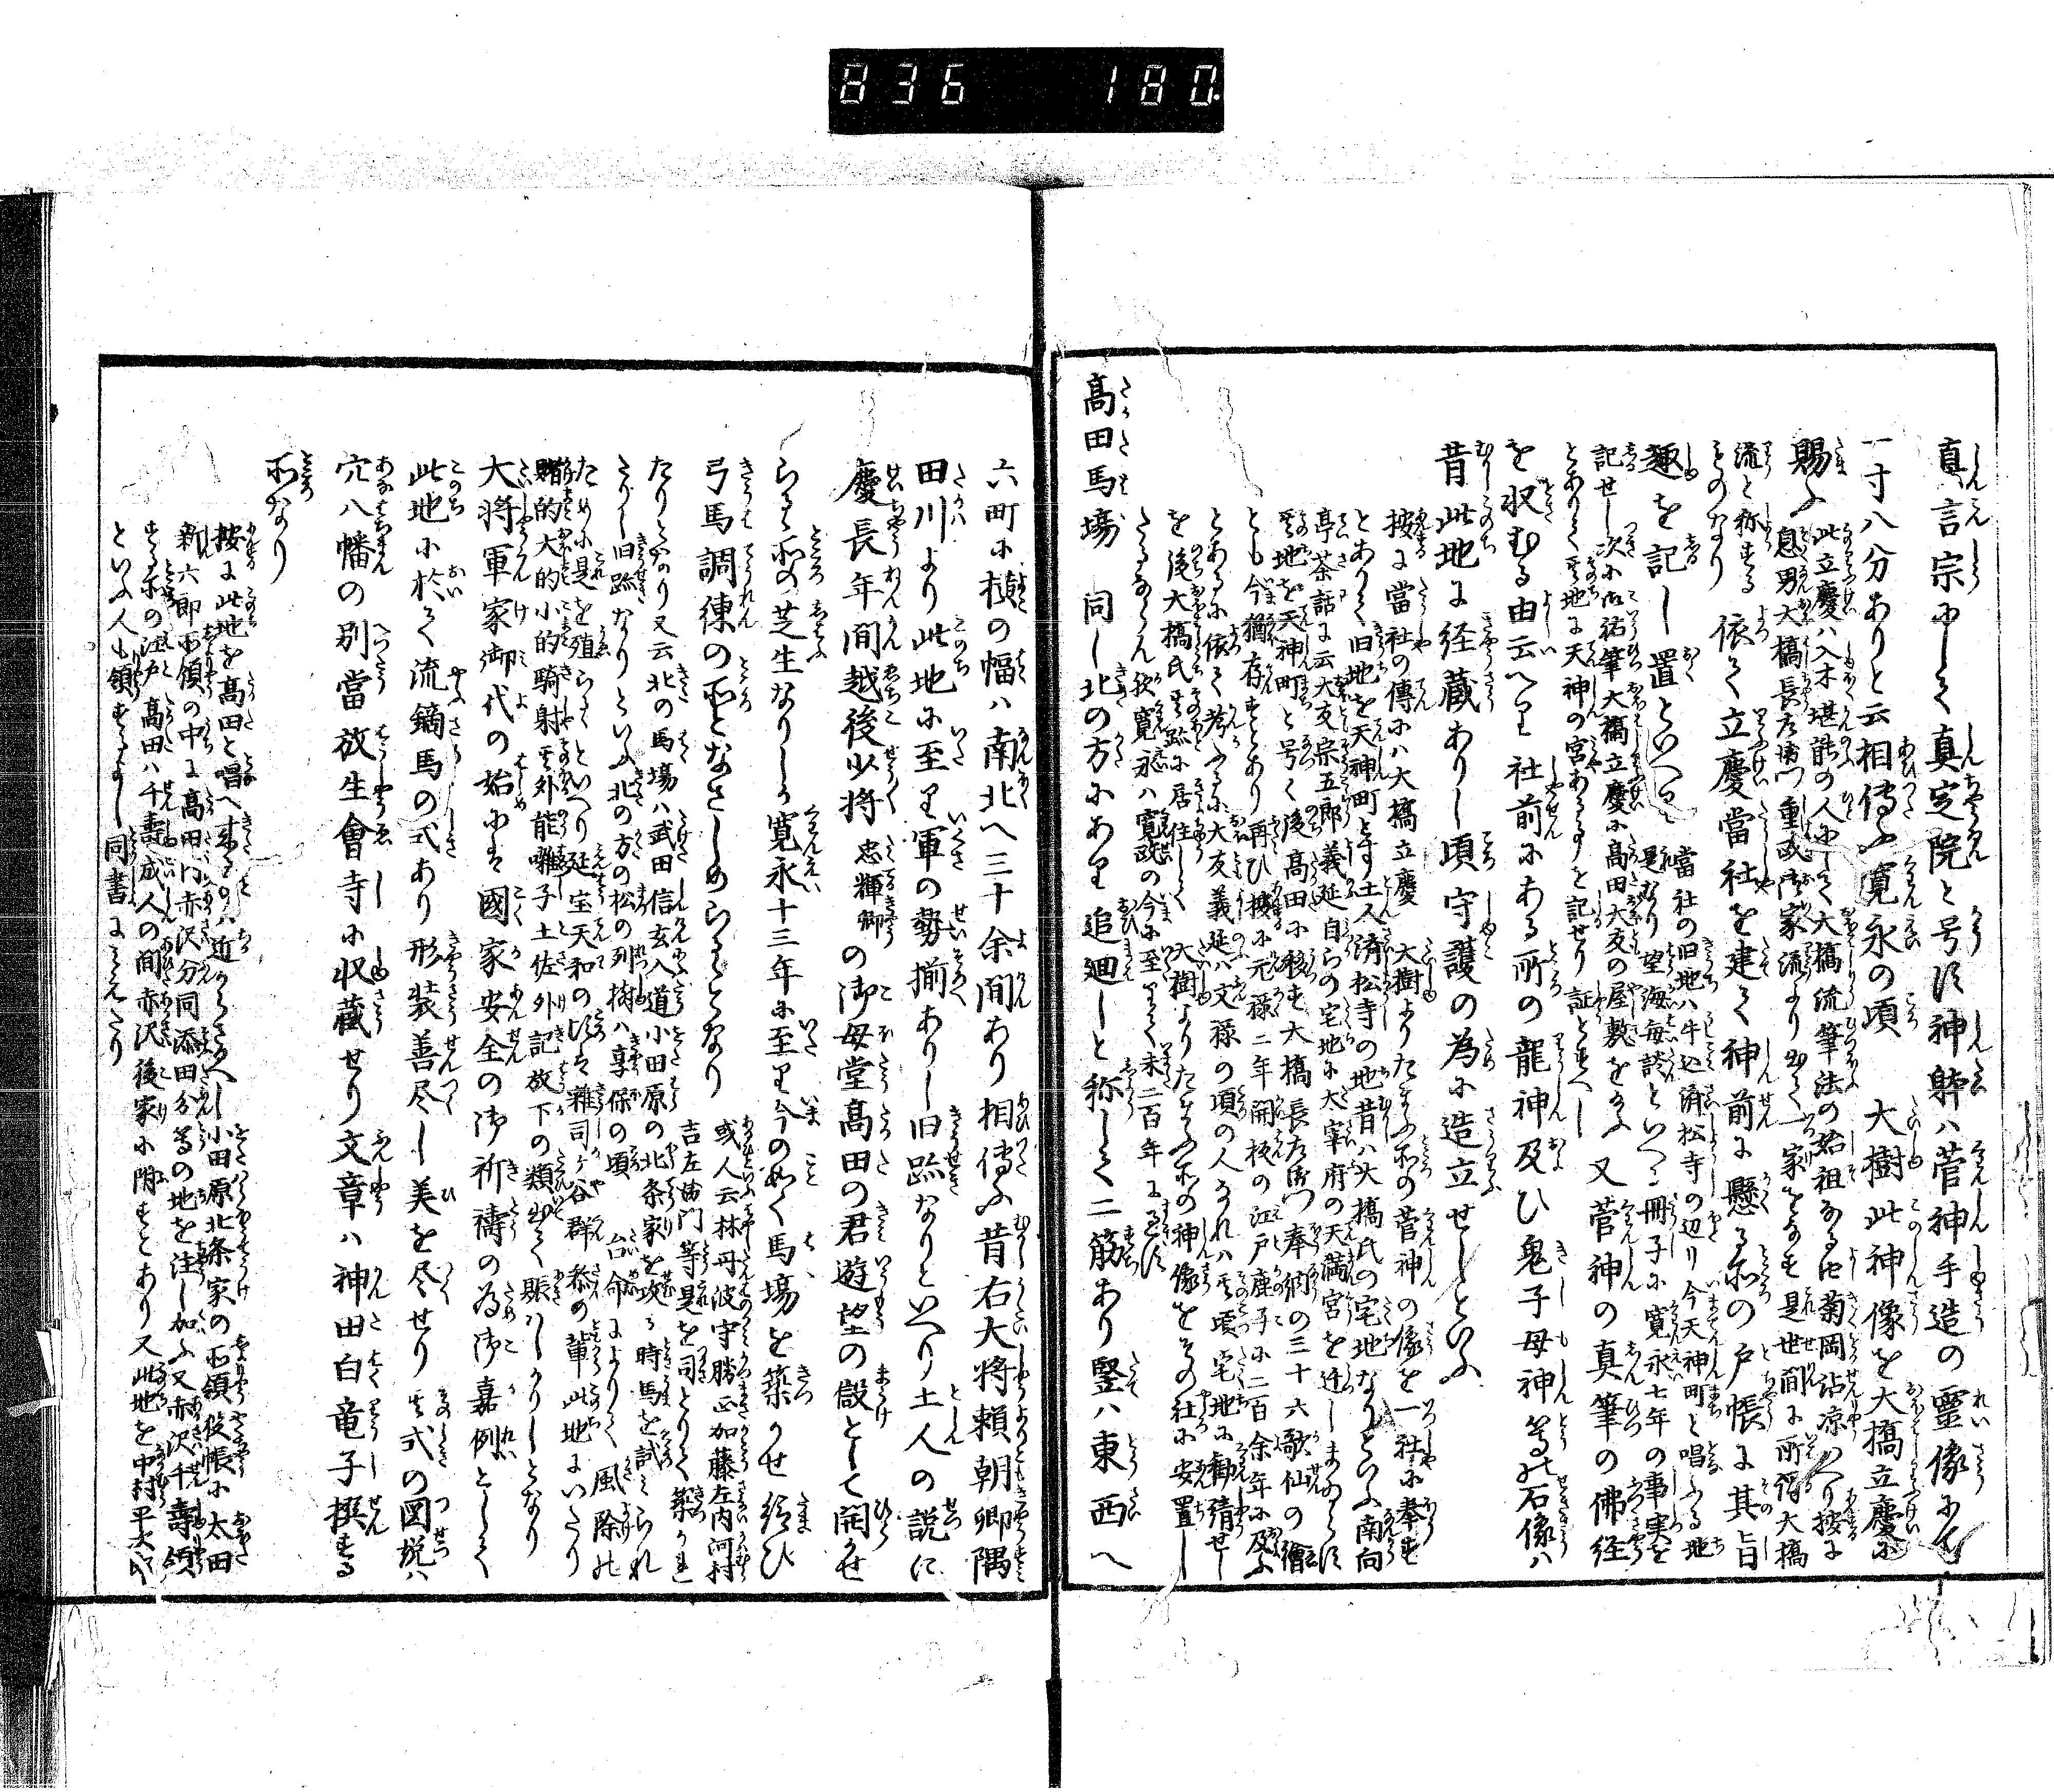 836 180
真言宗にして真定院と号す神躰ハ菅神手造の靈像にして
一寸八分ありと云相傳ふ寛永の頃 大樹此神像を大橋立慶に
賜ふ 此立慶ハ入木堪能の人にして大橋流筆法の始祖なるよし菊岡沾凉いへり按に
息男大橋長左衛門重政 家流より出て一家をなす是世間に所謂大橋
流と称するものなり 依て立慶當社を建て神前に懸る所の戸帳に其旨
趣を記し置といへり 當社の旧地ハ牛込済松寺の辺り今天神町と唱ふる地
是なり望海毎談といへる冊子に寛永七年の事実を
記せし次に御祐筆大橋立慶に高田大友の屋敷を給ふ
とありて其地に天神の宮あることを記せり証とすへし 又菅神の真筆の佛経
を収むる由云へり社前にある所の龍神及ひ鬼子母神等の石像ハ
昔此地に経蔵ありし頃守護の為に造立せしといふ
按に當社の傳にハ大橋立慶 大樹よりたまふ所の菅神の像を一社に奉す
とありて旧地を天神町とす土人済松寺の地昔ハ大橋氏の宅地なりといふ南向
亭茶話に云大友宗五郎義延自らの宅地に太宰府の天満宮を迁しまゐらす
其地を天神町と号く後高田に移す大橋長左衛門奉納の三十六歌仙の繪
とも今猶存すとあり再ひ按に元禄二年開板の江戸鹿子に二百余年に及ふ
とあるに依て考ふるに大友義延ハ文禄の頃の人なれハ其頃宅地に勧請せし
を後大橋氏其跡に居住して 大樹よりたまふ所の神像をその社に安置し
たるならん 寛永ハ寛政の今に至りて未二百年に過す
高田馬場 同し北の方にあり追廻しと称して二筋あり竪ハ東西へ
六町に横の幅ハ南北へ三十余間あり相傳ふ昔右大将頼朝卿隅
田川より此地に至り軍の勢揃ありし旧跡なりといへり土人の説に
慶長年間越後少将 忠輝卿 の御母堂高田の君遊望の設として開かせ
らるゝ所の芝生なりしを寛永十三年に至り今の如く馬場を築かせ給ひ
弓馬調練の所となさしめらるゝとなり 或人云林丹波守勝正加藤左内河村
吉左衛門等是を司とりて築かれ
たりとなり又云北の馬場ハ武田信玄入道小田原の北条家を攻る時馬を試られ
たりし旧跡なりといふ北の方の松の列樹ハ享保の頃 台命によりて風除の
ために是を殖らるゝといへり延宝天和の頃は雜司ヶ谷群参の輩此地にいたり
賭的大的小的騎射其外能囃子土佐外記放下の類出て賑ハしかりしとなり
大将軍家御代の始には國家安全の御祈禱の為御嘉例として
此地に於て流鏑馬の式あり形装善尽し美を尽せり其式の図説ハ
穴八幡の別當放生會寺に収蔵せり文章ハ神田白竜子撰する
所なり
按に此地を高田と唱へ来るハ近からさるへし小田原北条家の所領役帳に太田
新六郎所領の中に高田内赤沢分同添田分等の地を注し加ふ又赤沢千壽領
する所の江戸高田ハ千壽成人の間赤沢後家に附すとあり又此地を中村平次郎
といふ人も領するよし同書にみえたり